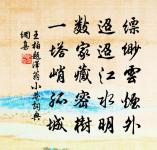 缥缈云烟外
迢迢江水明
数家藏密树
一塔峭孤城
王柏题泽翁小卷词典
网